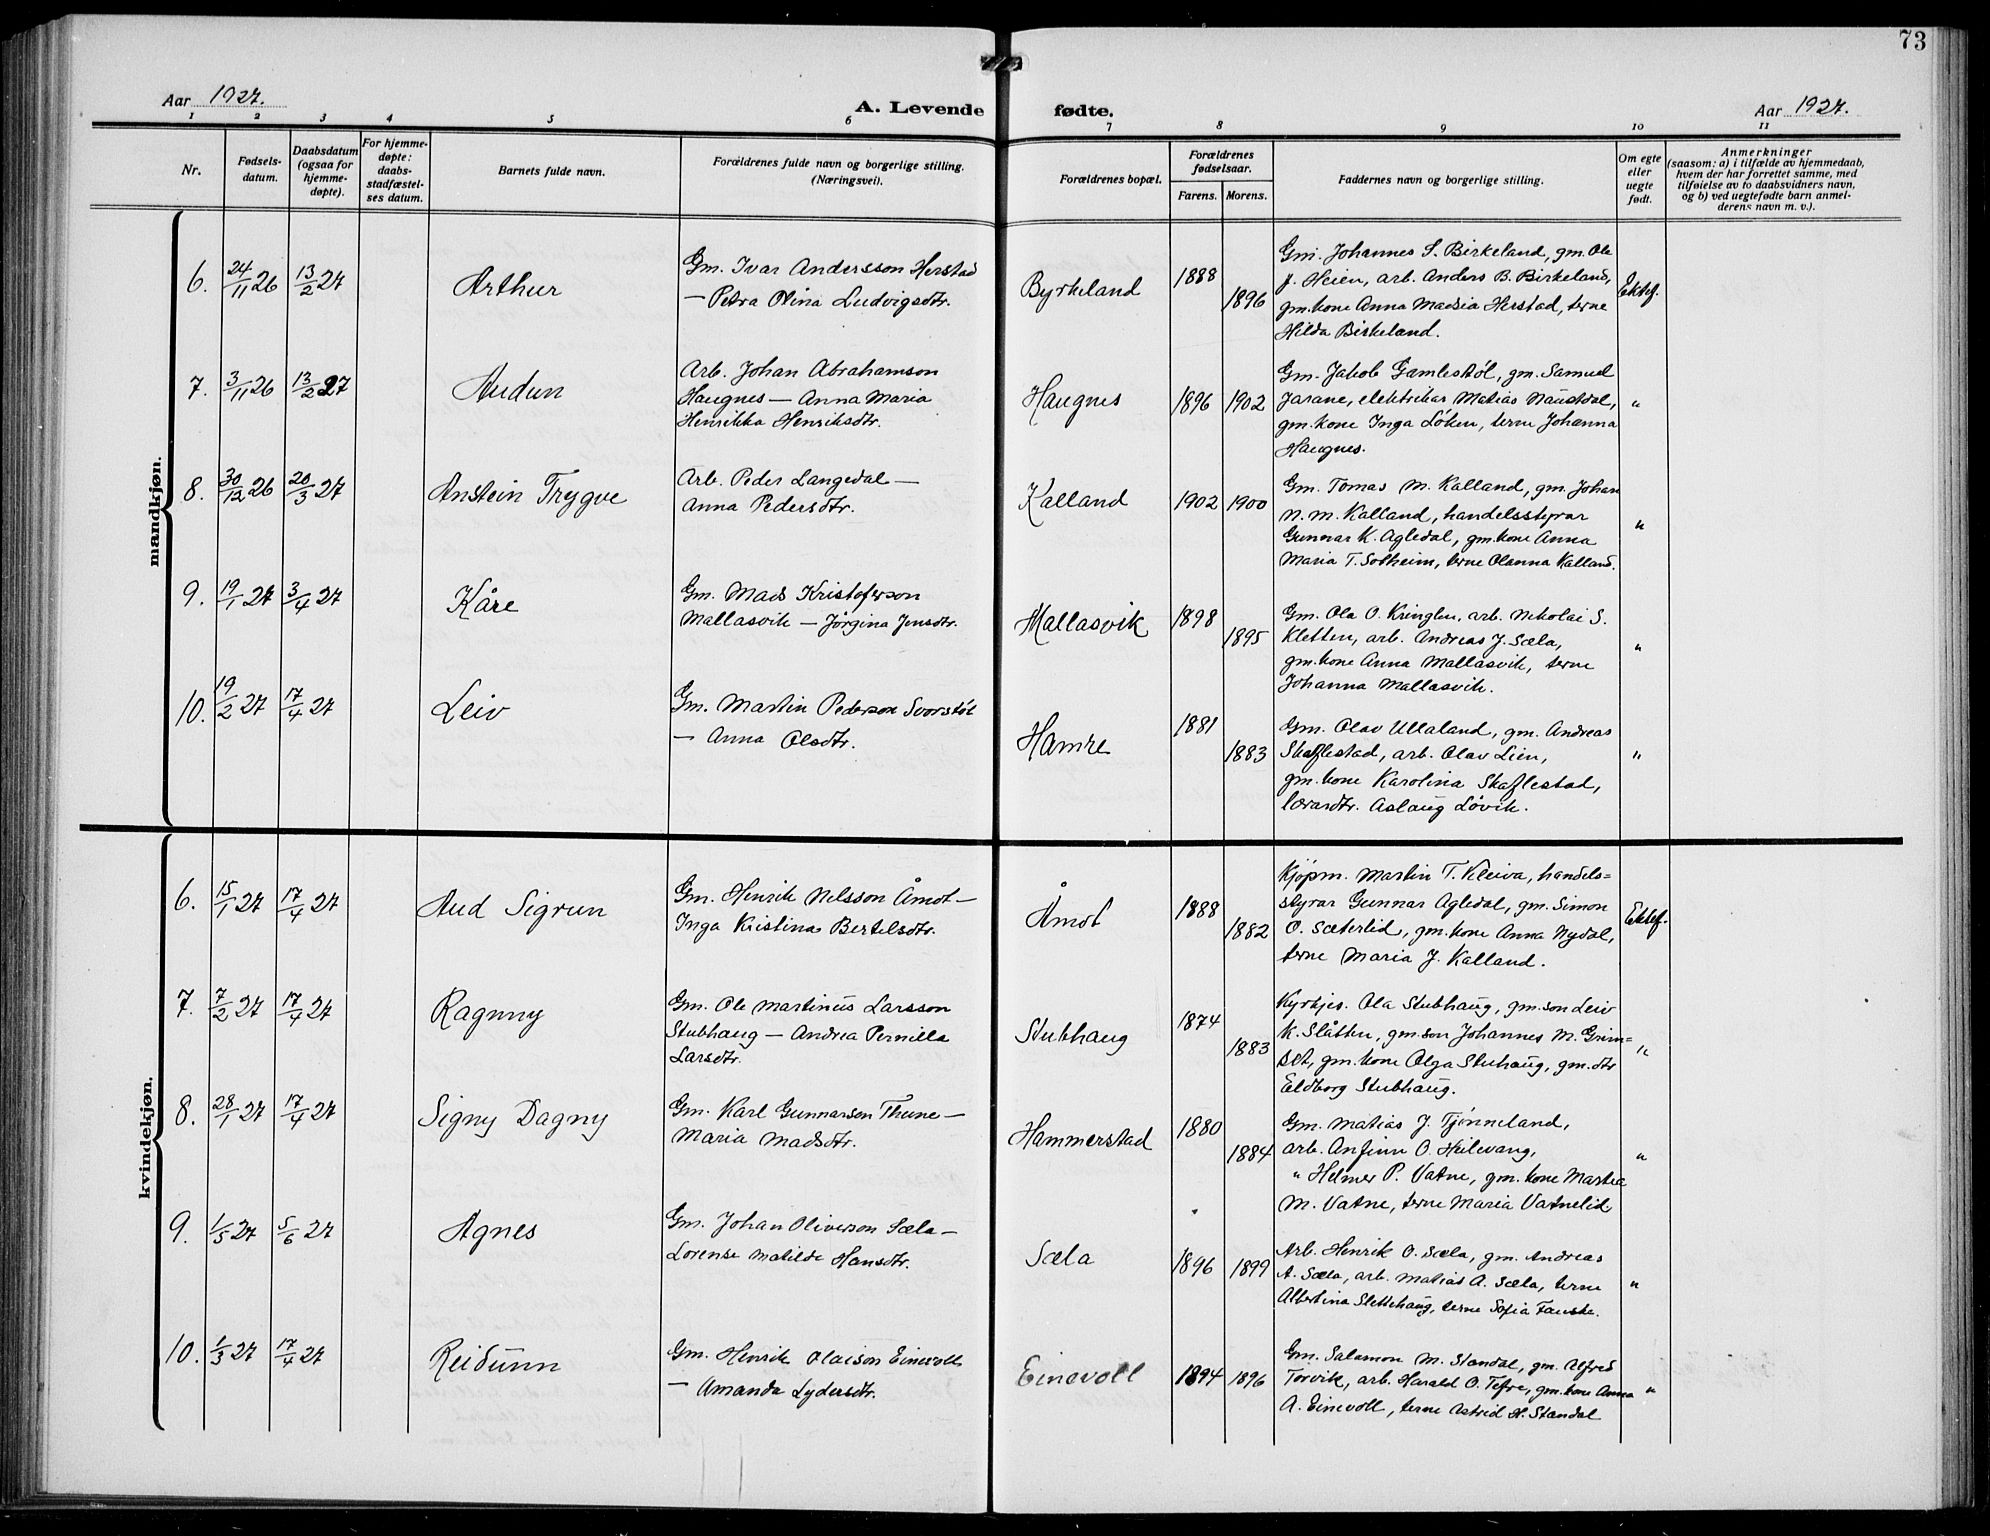 73
Aar 1927.
A. Levende fødte.
Aar 1927.
1 2 3 4 5 6 7 8 9 10 11
Nr.
Fødsels-
datum.
Daabsdatum
(ogsaa for
hjemme-
døpte).
For hjemme-
døpte:
daabs-
stadfæstel-
ses datum.
Barnets fulde navn.
Forældrenes fulde navn og borgerlige stilling.
(Næringsvei).
Forældrenes bopæl.
Forældrenes
fødselsaar.
Farens. Morens.
Faddernes navn og borgerlige stilling.
Om egte
eller
uegte
født.
Anmerkninger
(saasom: a) i tilfælde av hjemmedaab,
hvem der har forrettet samme, med
tilføielse av to daabsvidners navn,
og b) ved uegtefødte barn anmel-
derens navn m. v.).
mandkjøn.
6. 24/11 26 13/2 27
Arthur
Gm. Ivar Andersson Herstad
— Petra Olina Ludvigsdtr.
Byrkeland
1888
1896
Gm. Johannes S. Birkeland, gm. Ole
J. Heien, arb. Anders B. Birkeland,
gm.kone Anna Madsia Herstad, terne
Hilda Birkeland.
Ektef.
7. 3/11 26 13/2 27
Audun
Arb. Johan Abrahamson
Haugnes — Anna Maria
Henrikka Henriksdtr.
Haugnes
1896 1902
Gm. Jakob Gamlestøl, gm. Samuel
Jarane, elektrikar Matias Naustdal,
gm.kone Inga Løken, terne Johanna
Haugnes.
"
8. 30/12 26 20/3 27
Anstein Trygve
Arb. Peder Langedal —
Anna Pedersdtr.
Kalland
1902 1900
Gm. Tomas M. Kalland, gm. Johan
N. M. Kalland, handelsstyrar
Gunnar K. Agledal, gm.kone Anna
Maria T. Solheim, terne Olanna Kalland.
"
9. 19/1 27 3/4 27
Kåre
Gm. Mads Kristoferson
Mallasvik — Jørgina Jensdtr.
Mallasvik
1898
1895
Gm. Ola O. Kringlen, arb. Nikolai S.
Kletten, arb. Andreas J. Sæla,
gm.kone Anna Mallasvik, terne
Johanna Mallasvik.
"
10. 19/2 27 17/4 27
Leiv
Gm. Martin Pederson Svorstøl
— Anna Olsdtr.
Hamre
1881
1883
Gm. Olav Ullaland, gm. Andreas
Skaflestad, arb. Olav Lien,
gm.kone Karolina Skaflestad,
lærardtr. Aslaug Løvik.
"
kvindekjøn.
6. 15/1 27 17/4 27
Aud Sigrun
Gm. Henrik Nilsson Åmot —
Inga Kristina Bertelsdtr.
Åmot
1888
1882
Kjøpm. Martin T. Kleiva, handels=
styrar Gunnar Agledal, gm. Simon
O. Sæterlid, gm.kone Anna Nydal,
terne Maria J. Kalland.
Ektef.
7. 7/2 27 17/4 27
Ragnny
Gm. Ole Martinus Larsson
Stubhaug — Andrea Pernilla
Larsdtr.
Stubhaug
1874
1883
Kyrkjes. Ola Stubhaug, gm.son Leiv
K. Slåtten, gm.son Johannes M. Grim=
set, gm.kone Olga Stuhaug, gm.dtr
Eldborg Stubhaug.
"
8. 28/1 27 17/4 27
Signy Dagny
Gm. Karl Gunnarson Thune —
Maria Madsdtr.
Hammerstad
1880
1884
Gm. Matias J. Tjønneland,
arb. Anfinn O. Heilevang,
" Helmer P. Vatne, gm.kone Martha
M. Vatne, terne Maria Vatnelid.
"
9. 1/5 27 5/6 27
Agnes
Gm. Johan Oliverson Sæla —
Lorense Matilde Hansdtr.
Sæla
1896 1899
Arb. Henrik O. Sæla, gm. Andreas
A. Sæla, arb. Matias A. Sæla, terne
Albertina Slettehaug, terne Sofia Fauske.
"
10. 1/3 27 17/4 27
Reidunn
Gm. Henrik Olaison Einevoll
— Amanda Lydersdtr.
Einevoll
1894 1896
Gm. Salamon M. Standal, gm. Alfred
Torvik, arb. Harald O. Tefre, gm.kone Anna
A. Einevoll, terne Astrid H. Standal
"